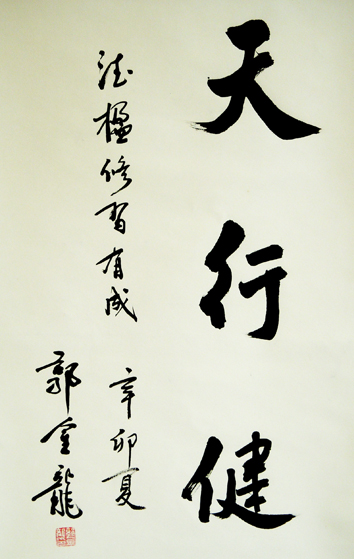 天行健
德楹修習有成
辛卯夏
郭金龍